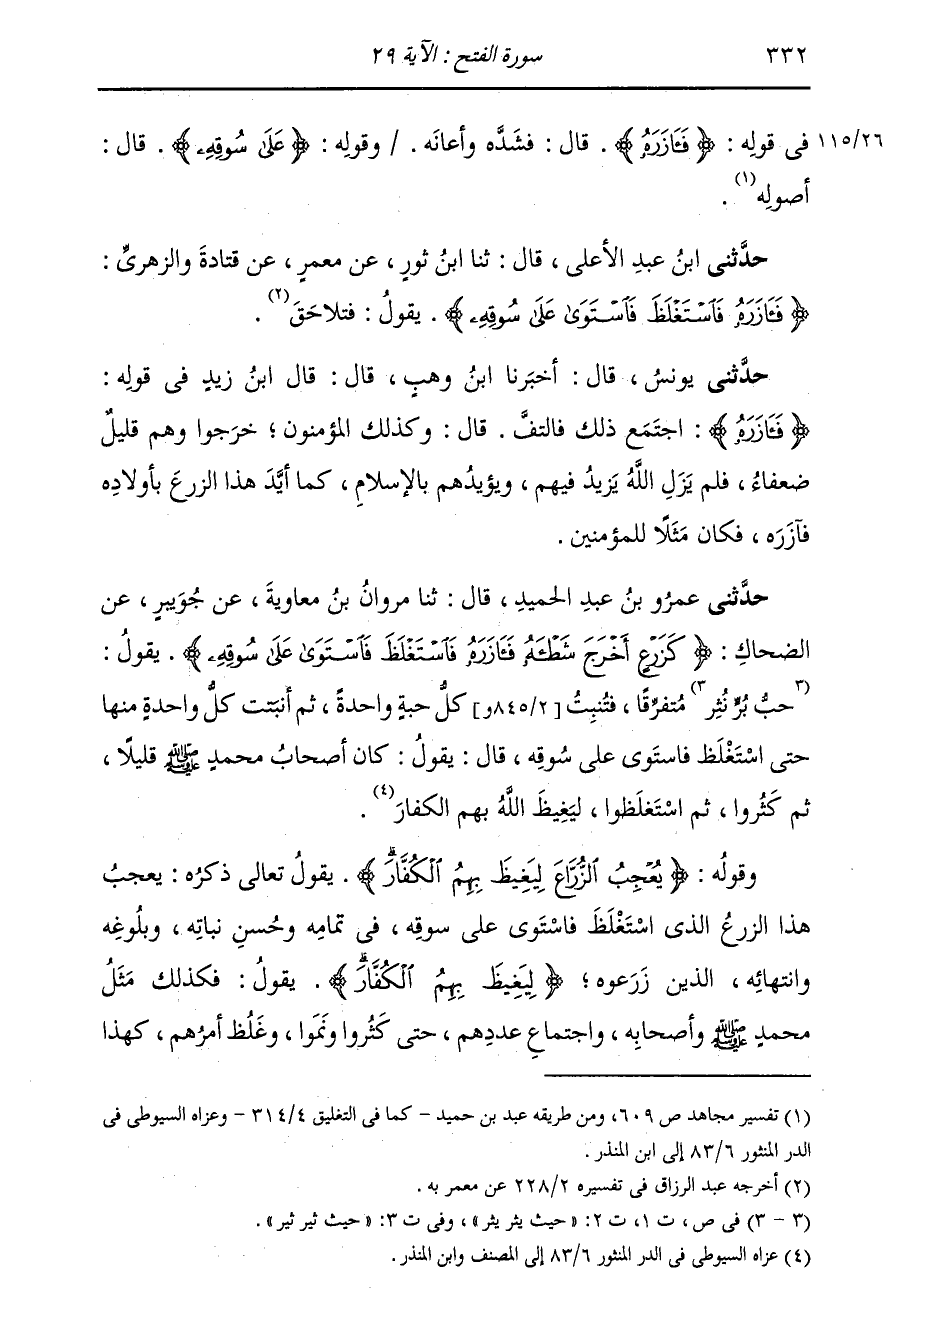 ٣٣٢ سورة الفتح : الآية ٢٩
١١٥/٢٦ فى قولِه : ﴿ فَـَٔازَرَهُۥ ﴾ . قال : فشَدَّه وأعانَه . / وقولِه : ﴿ عَلَىٰ سُوقِهِۦ ﴾ . قال :
أصولِه(١) .
حدَّثنى ابنُ عبدِ الأعلى ، قال : ثنا ابنُ ثورٍ ، عن معمرٍ ، عن قتادةَ والزهرىِّ :
﴿ فَـَٔازَرَهُۥ فَٱسْتَغْلَظَ فَٱسْتَوَىٰ عَلَىٰ سُوقِهِۦ ﴾ . يقولُ : فتلاحَقَ(٢) .
حدَّثنى يونسُ ، قال : أخبَرنا ابنُ وهبٍ ، قال : قال ابنُ زيدٍ فى قولِه :
﴿ فَـَٔازَرَهُۥ ﴾ : اجتَمَع ذلك فالتفَّ . قال : وكذلك المؤمنون ؛ خرَجوا وهم قليلٌ
ضعفاءُ ، فلم يَزَلِ اللَّهُ يَزيدُ فيهم ، ويؤيدُهم بالإسلامِ ، كما أيَّدَ هذا الزرعَ بأولادِه
فآزَرَه ، فكان مَثَلًا للمؤمنين .
حدَّثنى عمرُو بنُ عبدِ الحميدِ ، قال : ثنا مروانُ بنُ معاويةَ ، عن جُوَيبرٍ ، عن
الضحاكِ : ﴿ كَزَرْعٍ أَخْرَجَ شَطْـَٔهُۥ فَـَٔازَرَهُۥ فَٱسْتَغْلَظَ فَٱسْتَوَىٰ عَلَىٰ سُوقِهِۦ ﴾ . يقولُ :
(٣حبُّ بُرٍّ نُثِر٣) مُتفرقًا ، فتُنبِتُ [٨٤٥/٢و] كلُّ حبةٍ واحدةً ، ثم أنبَتت كلُّ واحدةٍ منها
حتى اسْتَغْلَظ فاستَوى على سُوقِه ، قال : يقولُ : كان أصحابُ محمدٍ ﷺ قليلًا ،
ثم كَثُروا ، ثم اسْتغلَظوا ، ليَغِيظَ اللَّهُ بهم الكفارَ(٤) .
وقولُه : ﴿ يُعْجِبُ ٱلزُّرَّاعَ لِيَغِيظَ بِهِمُ ٱلْكُفَّارَۗ ﴾ . يقولُ تعالى ذكرُه : يعجبُ
هذا الزرعُ الذى اسْتَغْلَظَ فاسْتَوى على سوقِه ، فى تمامِه وحُسنِ نباتِه ، وبلُوغِه
وانتهائِه ، الذين زَرَعوه ؛ ﴿ لِيَغِيظَ بِهِمُ ٱلْكُفَّارَۗ ﴾ . يقولُ : فكذلك مَثَلُ
محمدٍ ﷺ وأصحابِه ، واجتماعِ عددِهم ، حتى كَثُروا ونَمَوا ، وغَلُظ أمرُهم ، كهذا
(١) تفسير مجاهد ص ٦٠٩، ومن طريقه عبد بن حميد – كما فى التغليق ٣١٤/٤ – وعزاه السيوطى فى
الدر المنثور ٨٣/٦ إلى ابن المنذر .
(٢) أخرجه عبد الرزاق فى تفسيره ٢٢٨/٢ عن معمر به .
(٣ – ٣) فى ص ، ت ١، ت ٢: « حيث يثر يثر» ، وفى ت ٣: « حيث ثير ثير» .
(٤) عزاه السيوطى فى الدر المنثور ٨٣/٦ إلى المصنف وابن المنذر .